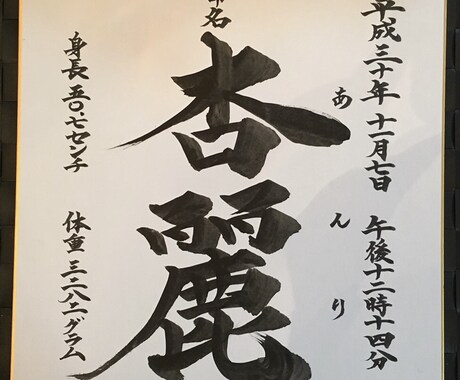 平成三十年 十一月七日 午後十二時十四分
あんり
命名
杏麗
身長 五〇.七センチ 体重 三二八二グラム